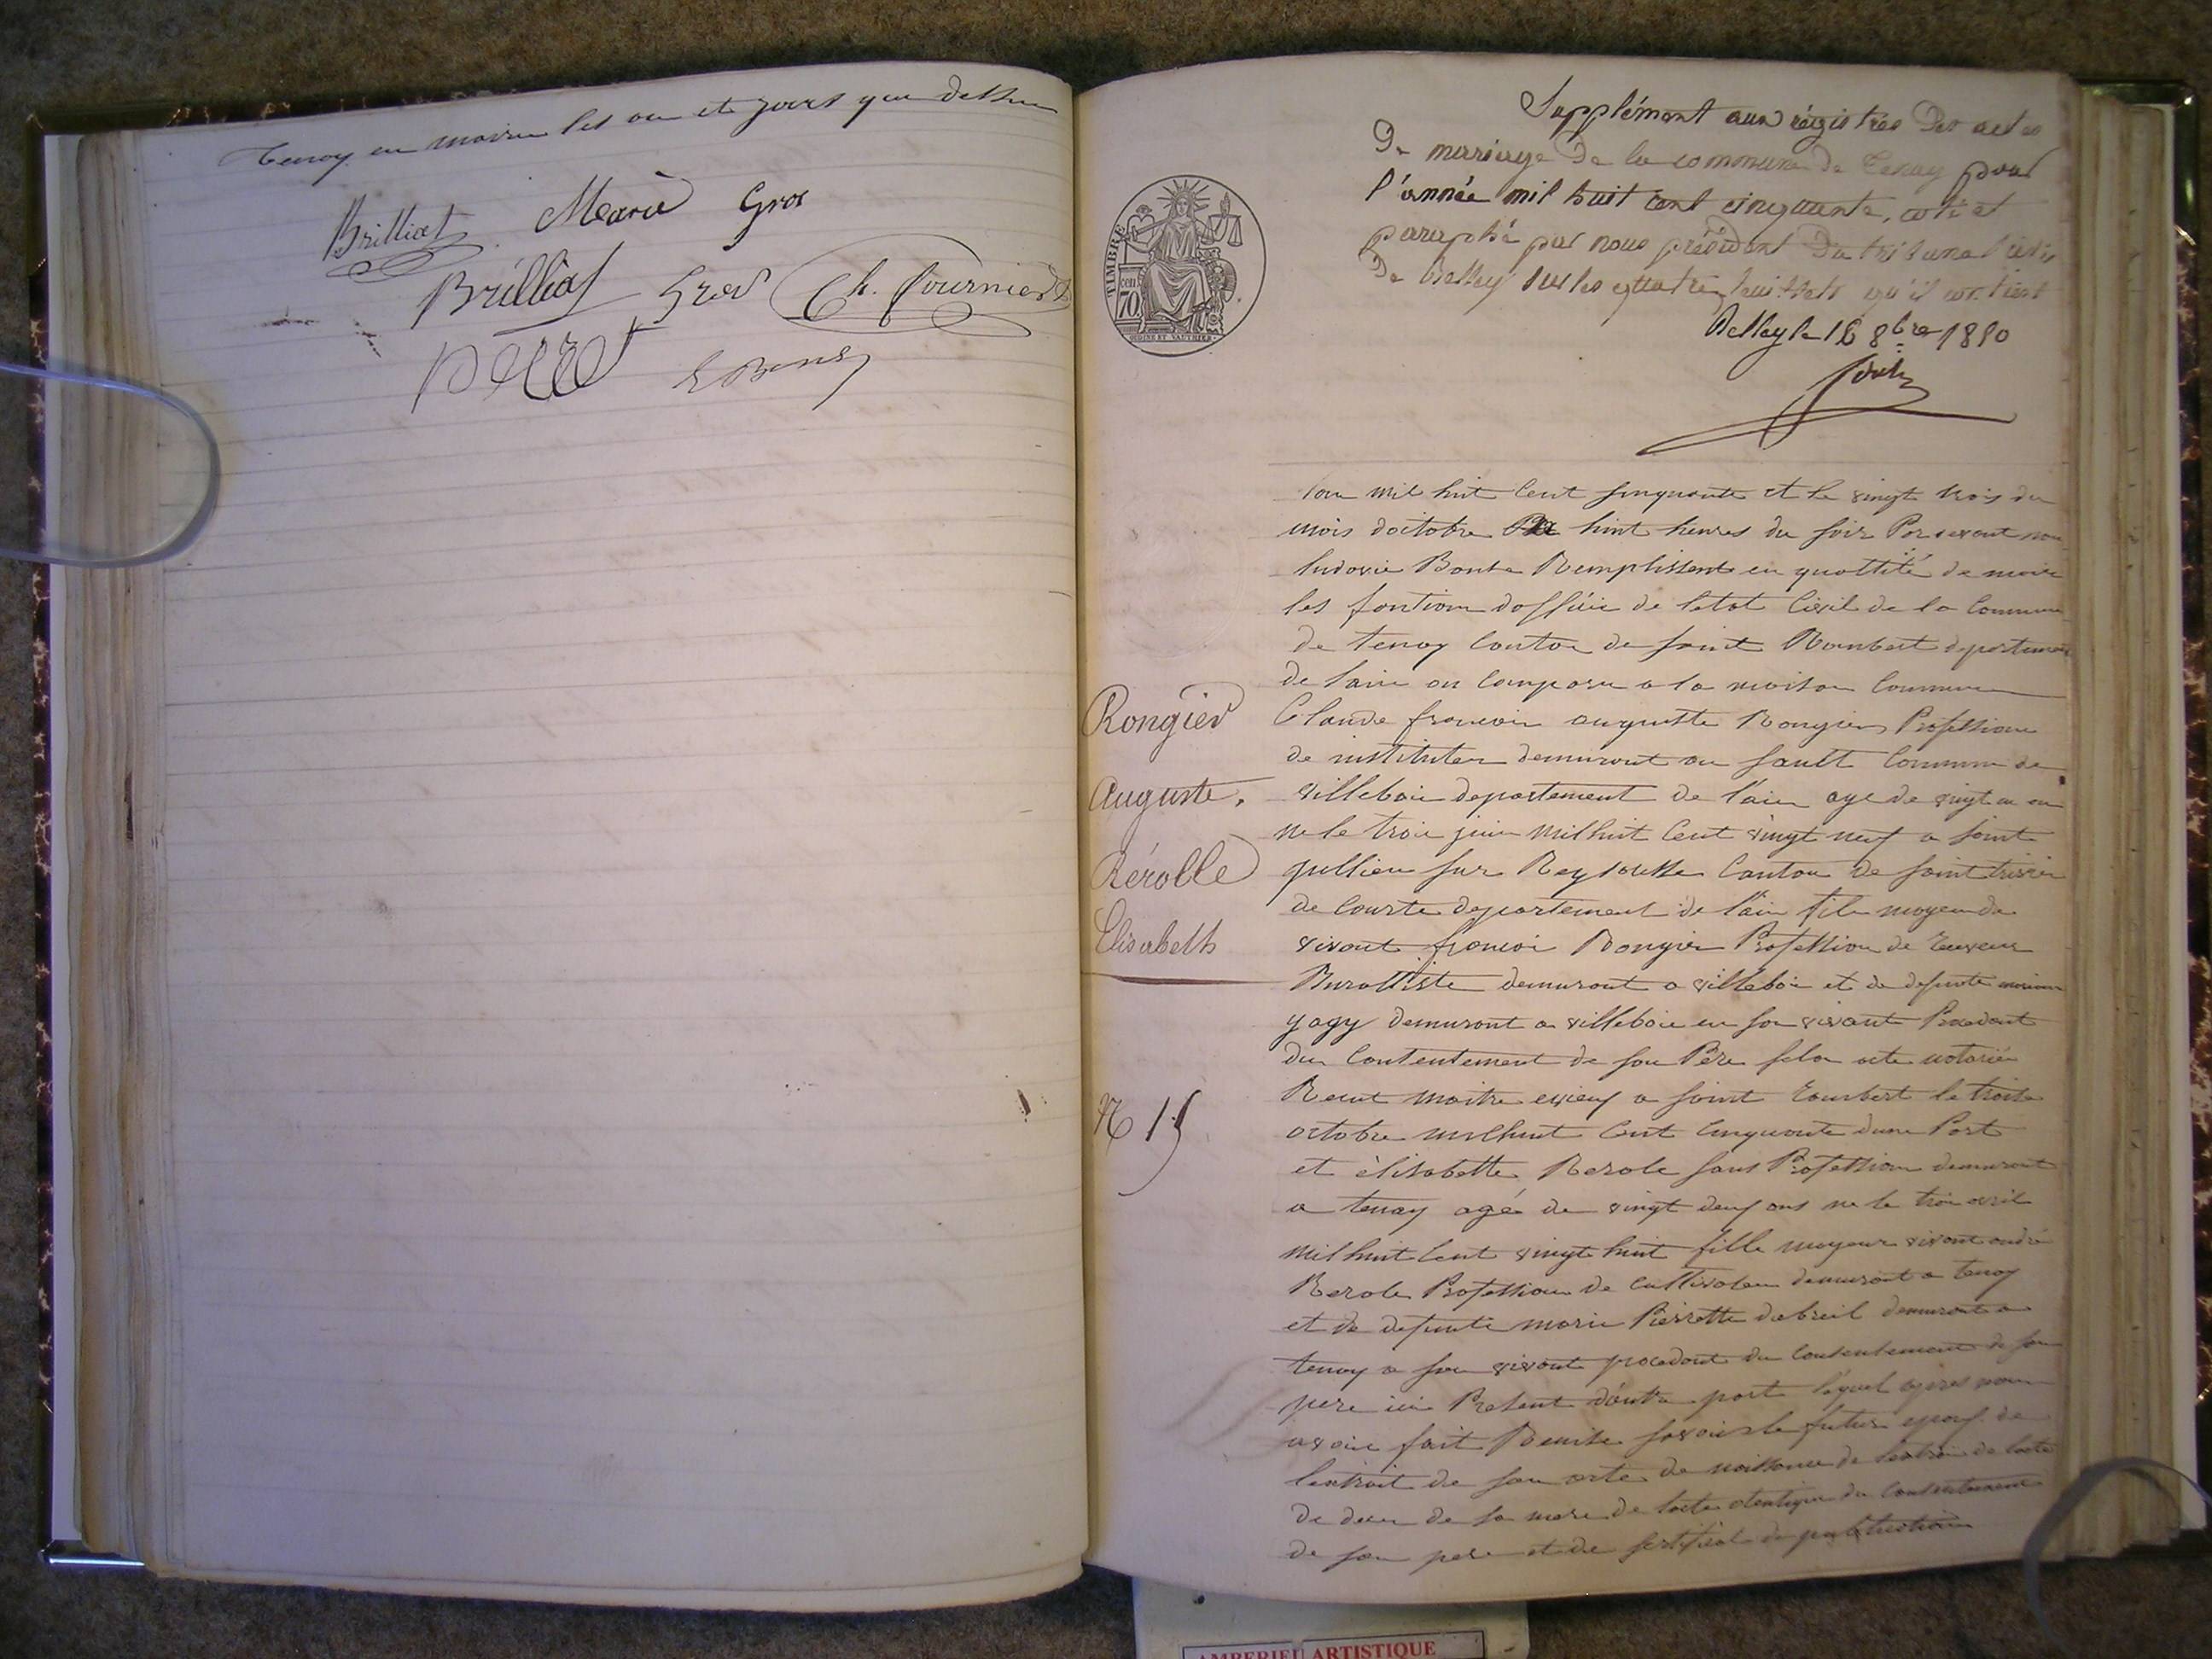 Tenay en mairie les an et jours que dessus
Brilliat Marie Gros
Brilliat Gros Ch. Fournier
Perret L Bont
Supplément aux régistres des actes
De mariage de la commune de Tenay pour
l'année mil huit cent cinquante, coté et
paraphé par nous président du tribunal civil
De Belley sur les quatre feuillets qu'il contient
Belley le 16 8bre 1850
TIMBRE
cens
70
lan mil huit Cent sinquante et le vingt trois du
mois doctobre huit heures du soir Pardevant nou
ludovic Bont Remplissant en quottité de maire
les fontion doffisie de letat Civil de la Commune
de tenay Canton de saint Rambert departement
de lain on Comparu a la maison Commune
Rongier
Claude francoi auguste Rongier Profession
de instituteur demurant au sault Commune de
Auguste.
villeboi departement de l'ain age de vingt un an
ne le troi juin mil huit Cent vingt neuf a saint
Rérolle
jullien sur Reyssouse Canton de saint trivier
de Courte departement de l'ain fils mageur de
Elisabeth
vivant francoi Rongier Profession de Reuveur
Burolliste demurant a villeboi et de defunte
yagy demurant a villeboi en son vivant Procedant
du Contentement de son Père selon acte notarié
Recut maitre a saint Rambert le troise
N 15
octobre mil huit Cent Cinquante dune Part
et élisabette Rerole sans Profession demurant
a tenay agée de vingt deuf ans ne le troi avril
mil huit Cent vingt huit fille mageur vivant andré
Rerole Profession de Cultivateur demurant a tenay
et de defunte marie Pierrette dubreil demurant a
tenay a son vivant procedant du Consentement de son
pere iui Present dautre part lequel apres nou
avoir fait Remise savoir le futur epouf de
lextrait de son acte de naissance de lextrai de lacte
de dece de sa mere de lacte otentique du Consentement
de son pere et de sertificat de publication
AMBERIEU ARTISTIQUE